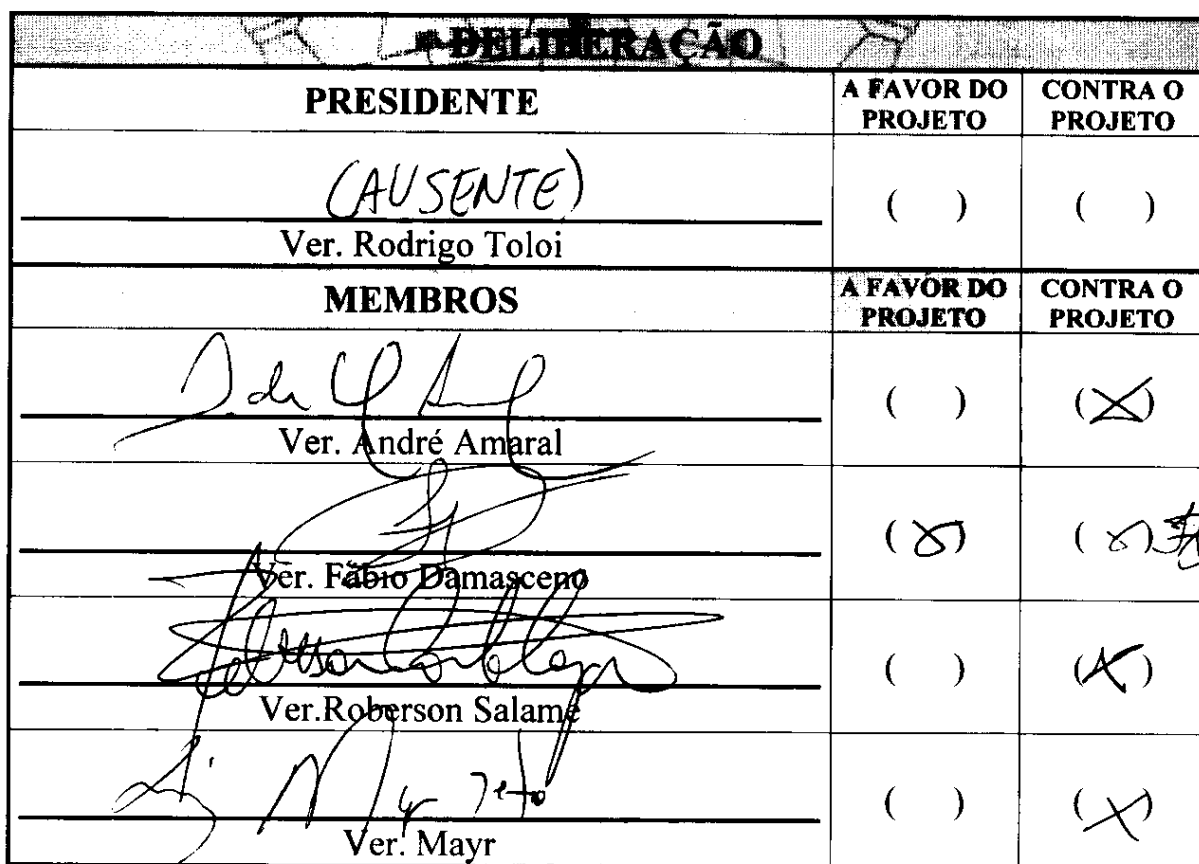 DELIBERAÇÃO
PRESIDENTE
A FAVOR DO PROJETO
CONTRA O PROJETO
(AUSENTE)
( )
( )
Ver. Rodrigo Toloi
MEMBROS
A FAVOR DO PROJETO
CONTRA O PROJETO
( )
(X)
Ver. André Amaral
(X)
(X)
Ver. Fábio Damasceno
( )
(X)
Ver.Roberson Salame
( )
(X)
Ver. Mayr